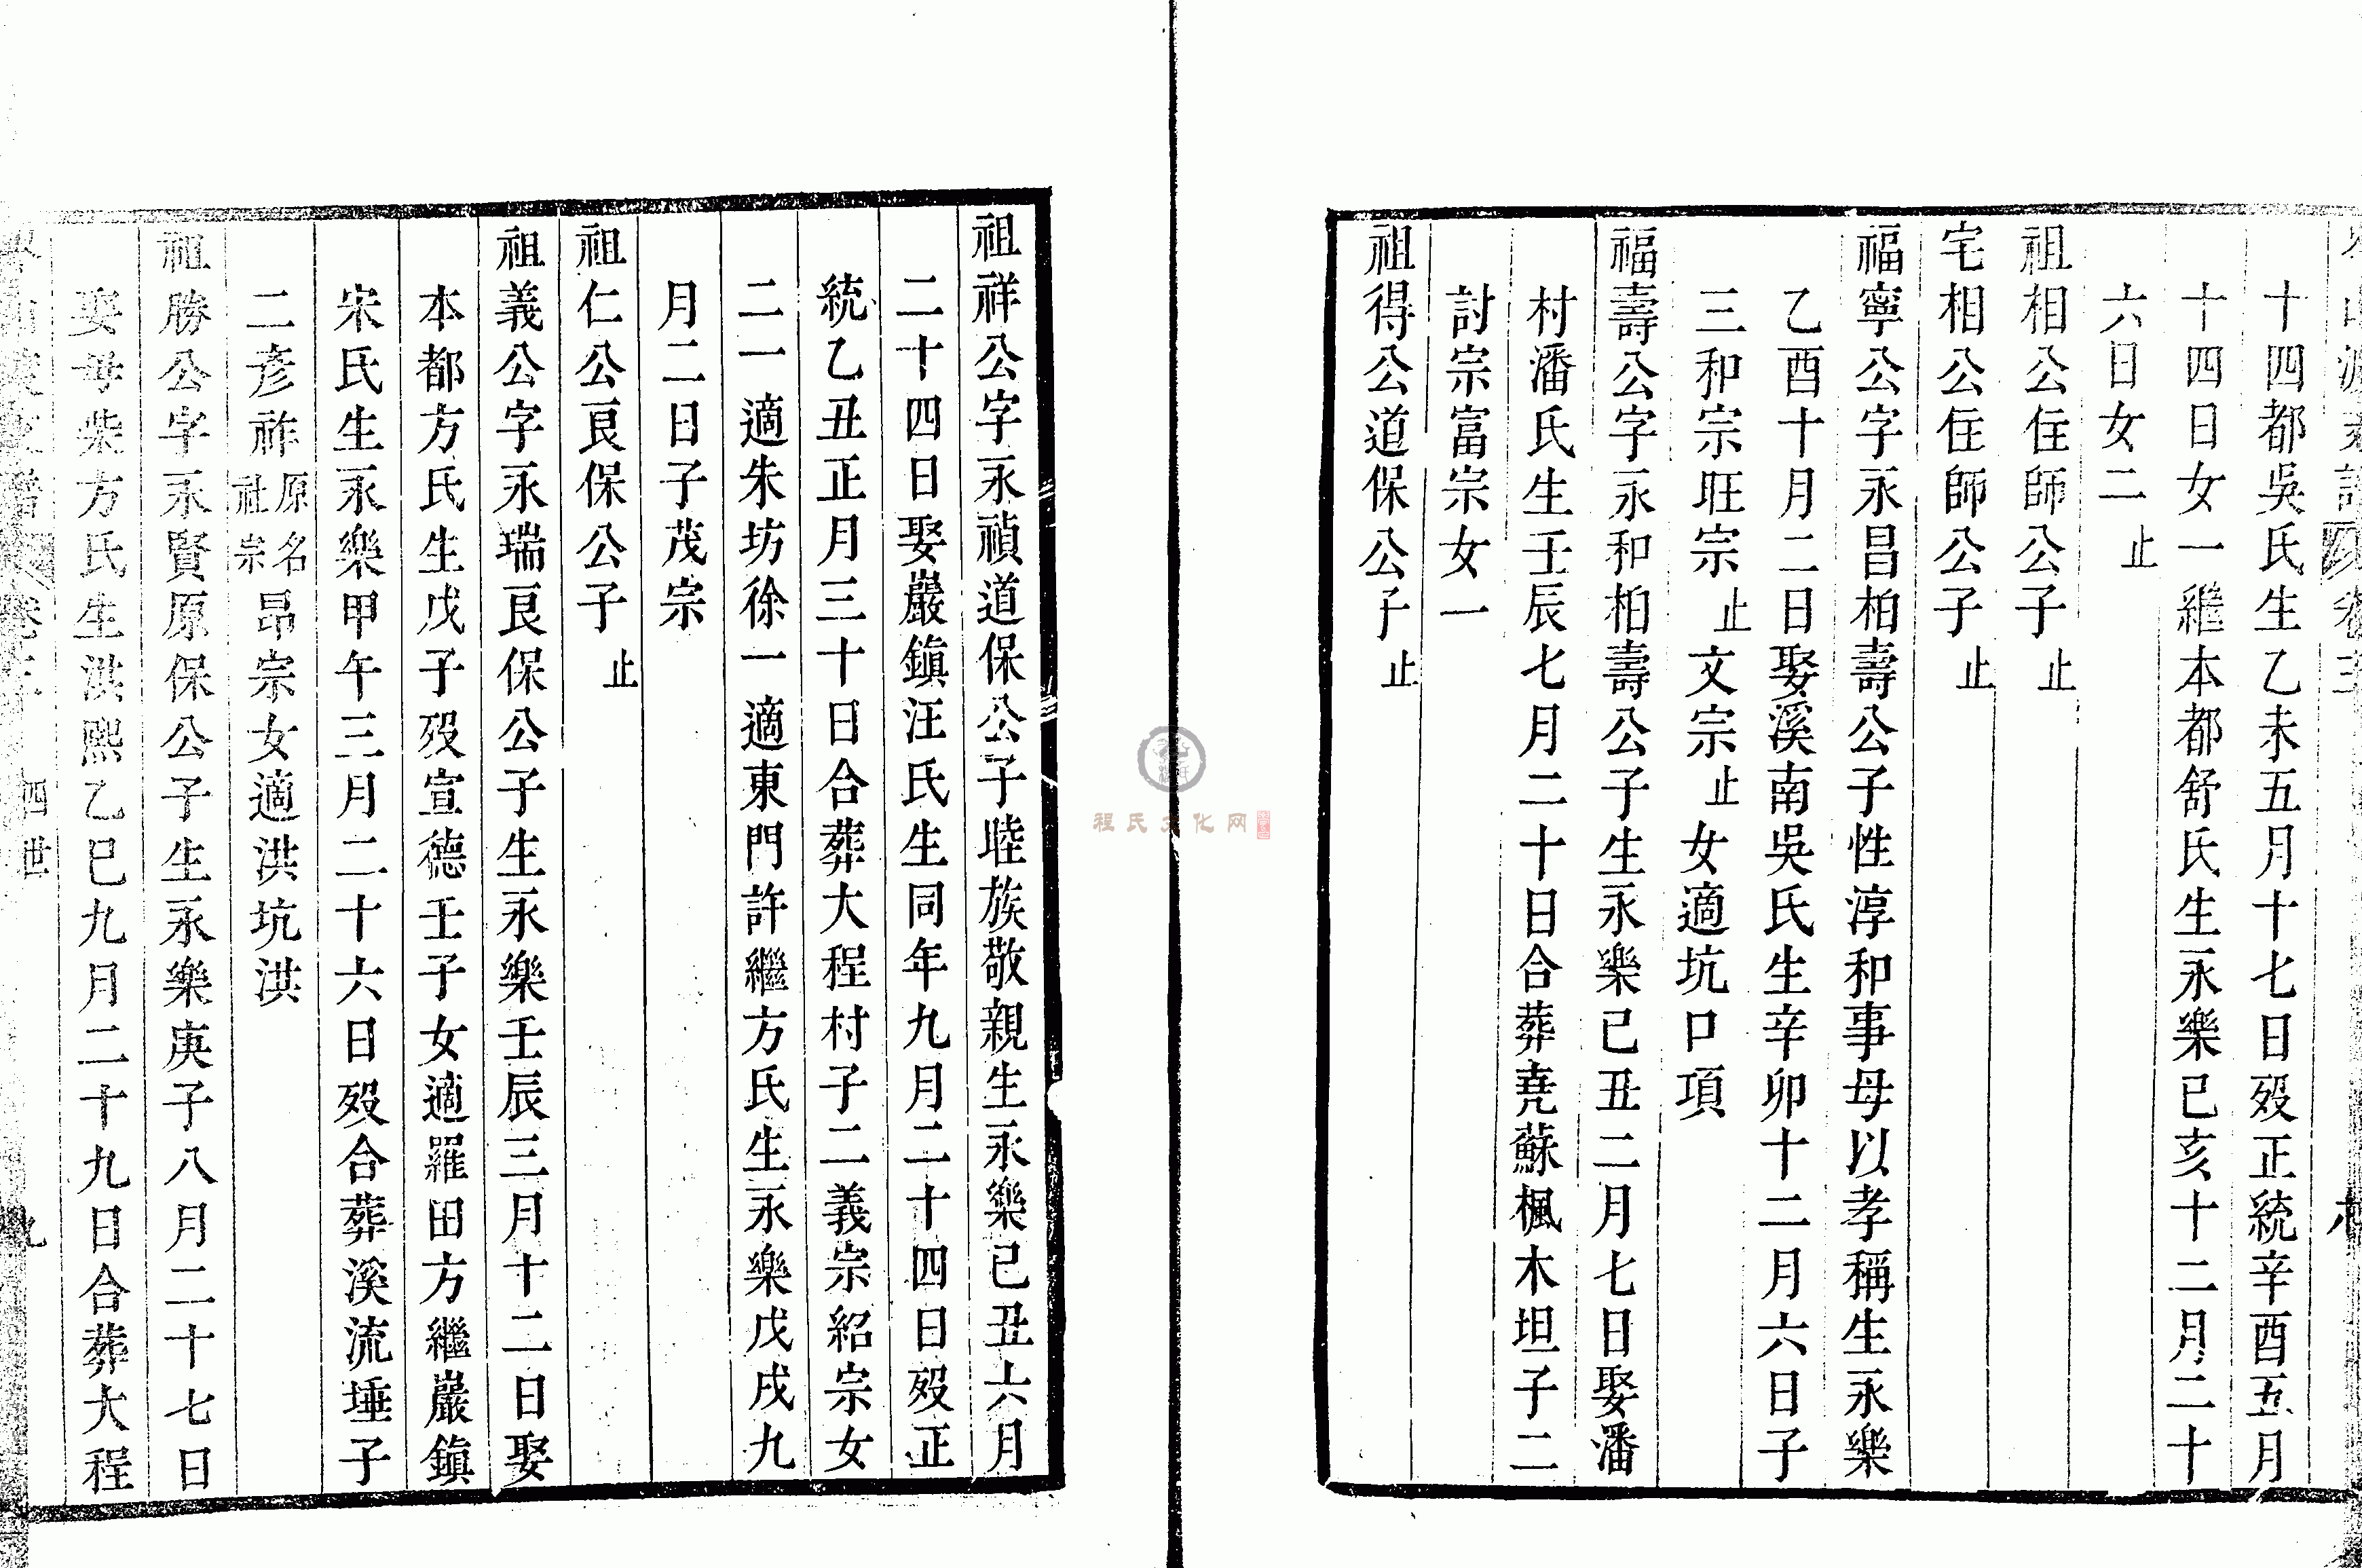 十四都吳氏生乙未五月十七日歿正統辛酉五月
十四日女一繼本都舒氏生永樂己亥十二月二十
六日女二止
祖相公住師公子止
宅相公住師公子止
福寧公字永昌柏壽公子性淳和事母以孝稱生永樂
乙酉十月二日娶溪南吳氏生辛卯十二月六日子
三和宗旺宗止文宗止女適坑口項
福壽公字永和柏壽公子生永樂己丑二月七日娶潘
村潘氏生壬辰七月二十日合葬堯蘇楓木坦子二
討宗富宗女一
祖得公道保公子止
祖祥公字永禎道保公子睦族敬親生永樂己丑六月
二十四日娶巖鎭汪氏生同年九月二十四日歿正
統乙丑正月三十日合葬大程村子二義宗紹宗女
二一適朱坊徐一適東門許繼方氏生永樂戊戌九
月二日子茂宗
祖仁公艮保公子止
祖義公字永瑞艮保公子生永樂壬辰三月十二日娶
本都方氏生戊子歿宣德壬子女適羅田方繼巖鎭
宋氏生永樂甲午三月二十六日歿合葬溪流埵子
二彥祚原名社宗昂宗女適洪坑洪
祖勝公字永賢原保公子生永樂庚子八月二十七日
娶毋柴方氏生洪熙乙巳九月二十九日合葬大程
卷三 四世 九
程氏文化网